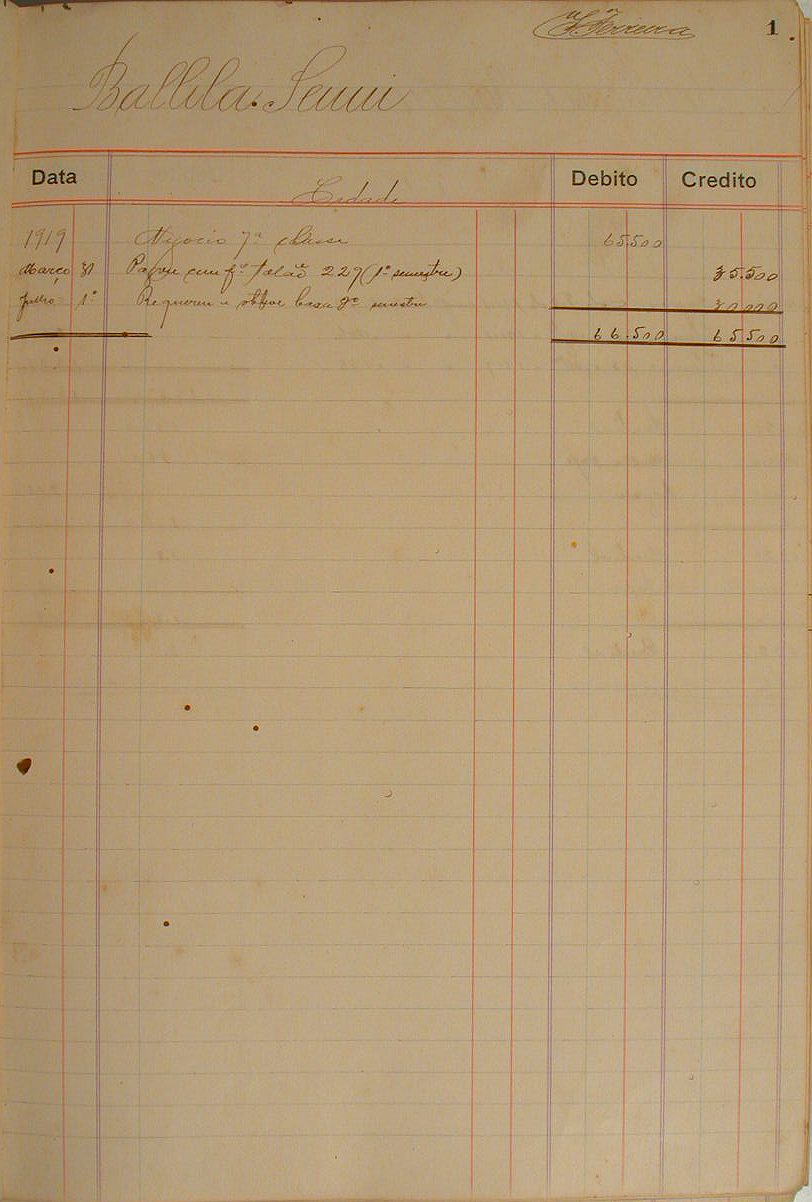 Ferreira 1
Ballila Senni
Data Cidade Debito Credito
1919 Negocio 7ª classe 65.500
Março 31 Pagou cunf.º talaõ 227 (1º semestre) 35.500
Julho 1º Requereu e obteve baxa 2º semestre 30.000
66.500 65500